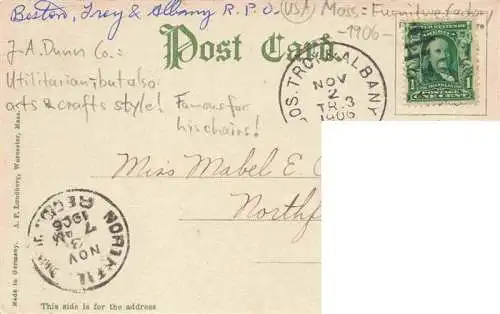 Boston, Troy & Albany R.P.O. (USA) Mass: Furniture factory
-1906-
J.A. Dunn Co.:
Utilitarian, but also
arts & crafts style! Famous for
his chairs!
Post Card
BOS. TROY & ALBANY
NOV
2
TR.3
1906
1
Miss Mabel E. C
Northf
NORTHFIE
NOV
3
7 AM
1906
REC'D
Made in Germany. A. P. Lundborg, Worcester, Mass.
This side is for the address